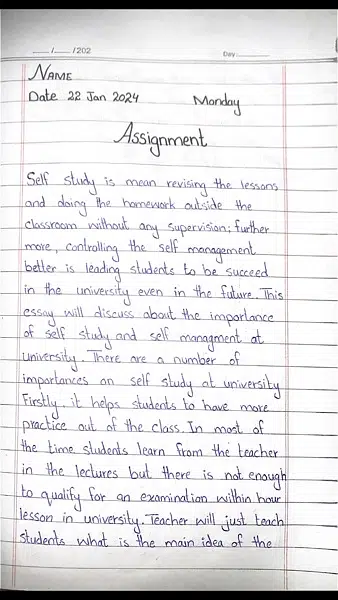 ___/___/202
Day:
NAME
Date 22 Jan 2024 Monday
Assignment
Self study is mean revising the lessons
and doing the homework outside the
classroom without any supervision; further
more, controlling the self management
better is leading students to be succeed
in the university even in the future. This
essay will discuss about the importance
of self study and self managment at
university. There are a number of
importances on self study at university
Firstly, it helps students to have more
practice out of the class. In most of
the time students learn from the teacher
in the lectures but there is not enough
to qualify for an examination within hour
lesson in university. Teacher will just teach
students what is the main idea of the